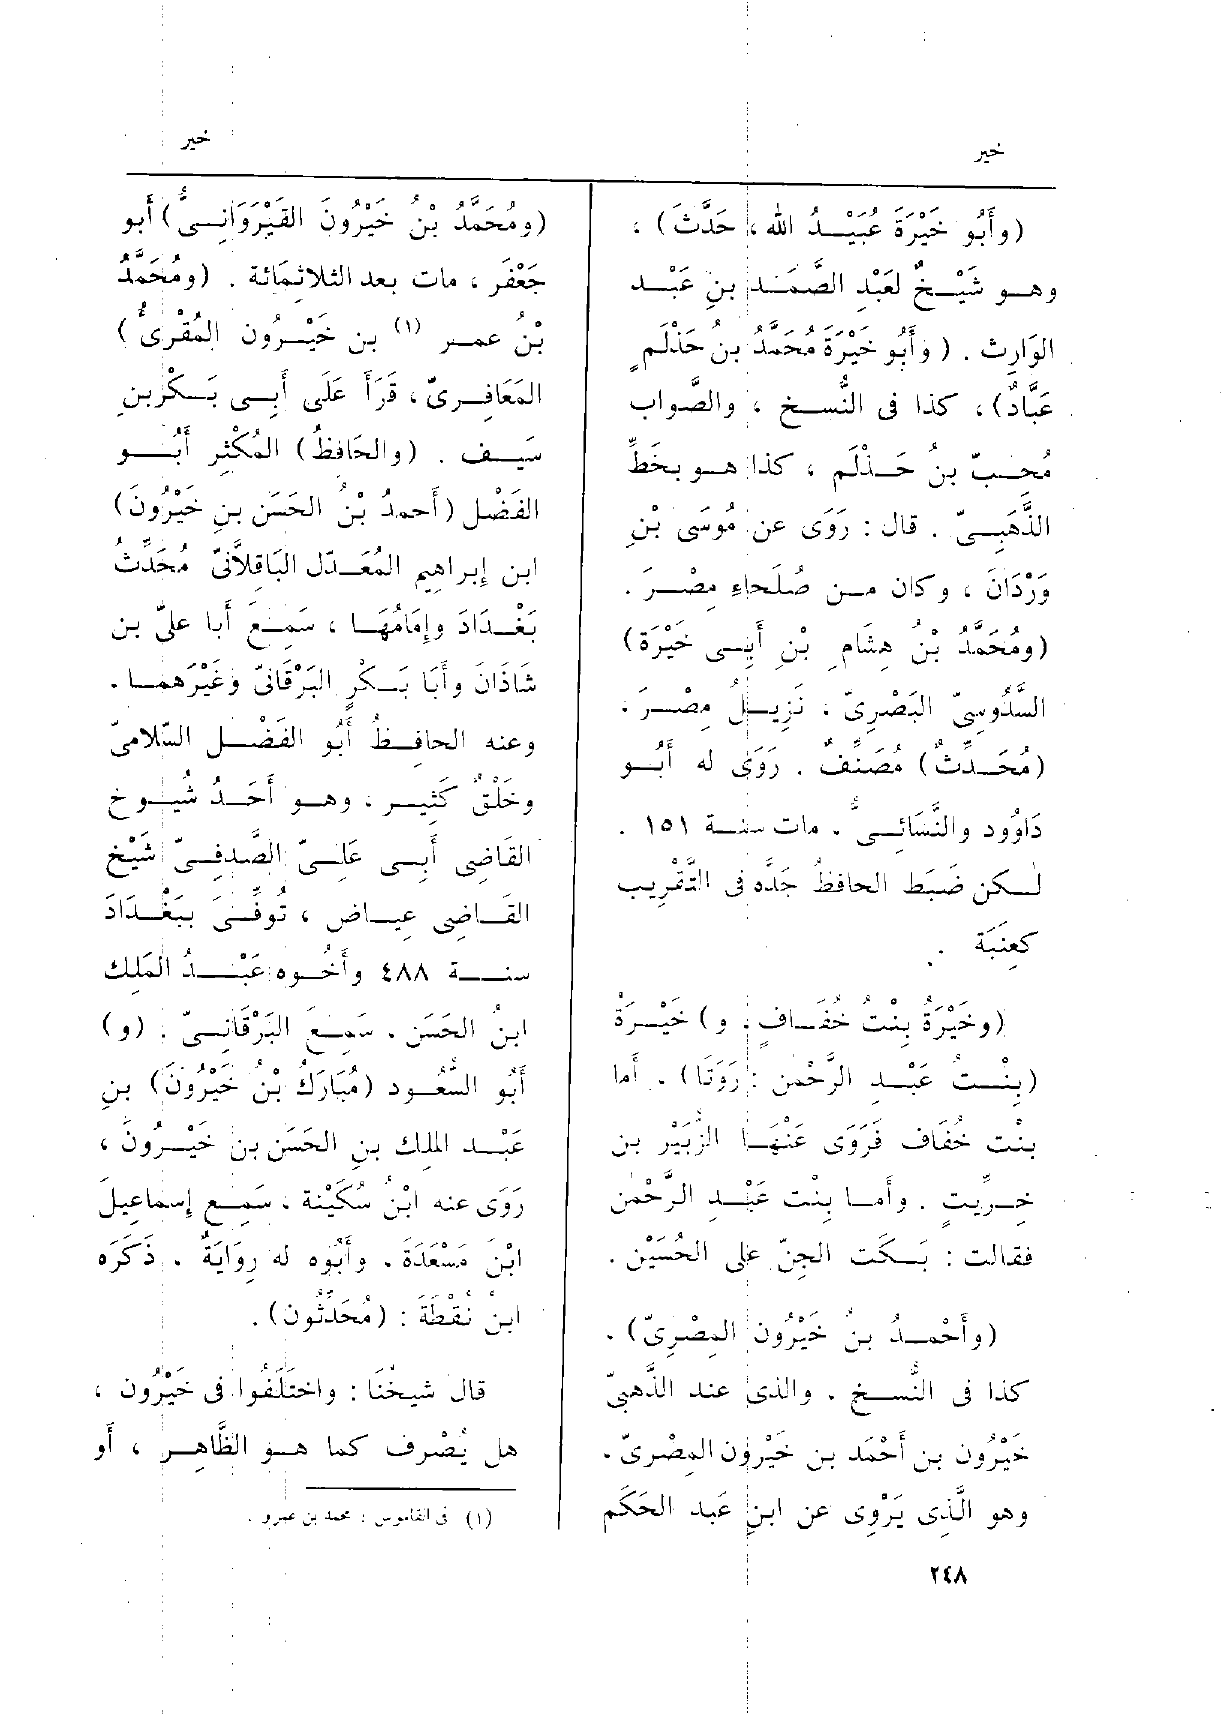 خير
خير
(وأَبُو خَيْرَةَ عُبَيْدُ الله، حَدَّثَ) ،
وهو شَيْخٌ لعَبْدِ الصَّمَد بنِ عَبْد
الوَارِث . (وأَبُو خَيْرَةَ مُحَمَّدُ بنُ حَذْلَمٍ
عَبَّادٌ)، كذا فى النُّسخ ، والصَّواب
مُحبّ بنُ حَذْلَم ، كذا هو بخَطِّ
الذَّهَبِىّ . قال : رَوَى عن مُوسَى بْنِ
وَرْدَانَ ، وكان من صُلَحاءِ مِصْرَ .
(ومُحَمَّدُ بْنُ هِشَامِ بْنِ أَبِى خَيْرَةَ)
السَّدُوسِىّ البَصْرِىّ ، نَزِيلُ مِصْرَ،
(مُحَدِّثٌ) مُصَنِّفٌ . رَوَى له أَبُو
دَاوُود والنَّسَائِىُّ . مات سنة ١٥١ .
لكن ضَبَط الحافظُ جَدَّه فى التَّقْرِيب
كعِنَبَة .
(وخَيْرَةُ بِنْتُ خُفَافٍ. و) خَيْرَةُ
(بِنْتُ عَبْدِ الرَّحْمن : رَوَتَا) . أَما
بنْت خُفَاف فَرَوَى عَنْهَا الزُّبَيْر بن
خِرِّيتٍ . وأَما بِنْت عَبْدِ الرَّحْمن
فقالت : بَكَت الجِنّ على الحُسَيْن .
(وأَحْمدُ بنُ خَيْرُون المِصْرِىّ) .
كذا فى النُّسخ . والذى عند الذَّهبىّ
خَيْرُون بن أَحْمَد بن خَيْرُون المِصْرىّ .
وهو الَّذِى يَرْوِى عن ابنِ عَبد الحَكَم
(ومُحَمَّدُ بْنُ خَيْرُونَ القَيْرَوَانِىُّ) أَبو
جَعْفَر ، مات بعد الثلاثمَائة . (ومُحَمَّدُ
بْنُ عمر (١) بن خَيْرُون المُقْرِىُّ)
المَعَافِرىّ، قَرَأَ عَلَى أَبى بَكْر بنِ
سَيف . (والحَافظُ) المُكْثِر أَبُو
الفَضْل (أَحمدُ بْنُ الحَسَن بنِ خَيْرُونَ)
ابن إِبراهيم المُعَدّل البَاقلاَّنىّ مُحَدِّثُ
بَغْدَادَ وإِمَامُهَا ، سَمِعَ أَبا علىّ بن
شَاذَانَ وأَبَا بَكْرٍ البَرْقَانىّ وَغَيْرَهما .
وعنه الحافظُ أَبُو الفَضْل السّلامىّ
وخَلْقٌ كَثِير ، وهو أَحَدُ شُيُوخ
القَاضِى أَبى عَلىّ الصَّدفِىّ شَيْخِ
القَاضِى عِيَاض ، تُوفِّىَ ببَغْدَادَ
سنة ٤٨٨ وأَخُوه عَبْدُ المَلِك
ابنُ الحَسَن . سَمِعَ البَرْقَانِىّ . (و)
أَبُو السُّعُود (مُبَارَكُ بْنُ خَيْرُونَ) بنِ
عَبْد الملك بنِ الحَسَن بن خَيْرُونَ ،
رَوَى عنه ابْنُ سُكَيْنَة ، سَمِع إِسماعِيلَ
ابْنَ مَسْعَدَةَ . وأَبُوه له رِوَايَةٌ . ذَكَرَه
ابنُ نُقْطَةَ : (مُحَدِّثُون) .
قال شيخُنَا : واختَلَفُوا فى خَيْرُون ،
هل يُصْرف كما هو الظَّاهِر ، أَو
(١) فى القاموس : محمد بن عمرو .
٢٤٨